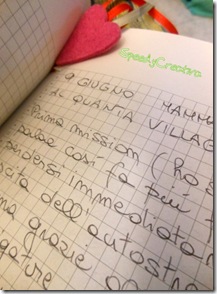 GeekyCreativa
9 GIUGNO MAMMA
AL QUANTA VILLAG
Prima mission (ho s
paese così fa più f
perdersi immediatam
scita dell'autostra
ma grazie
igature